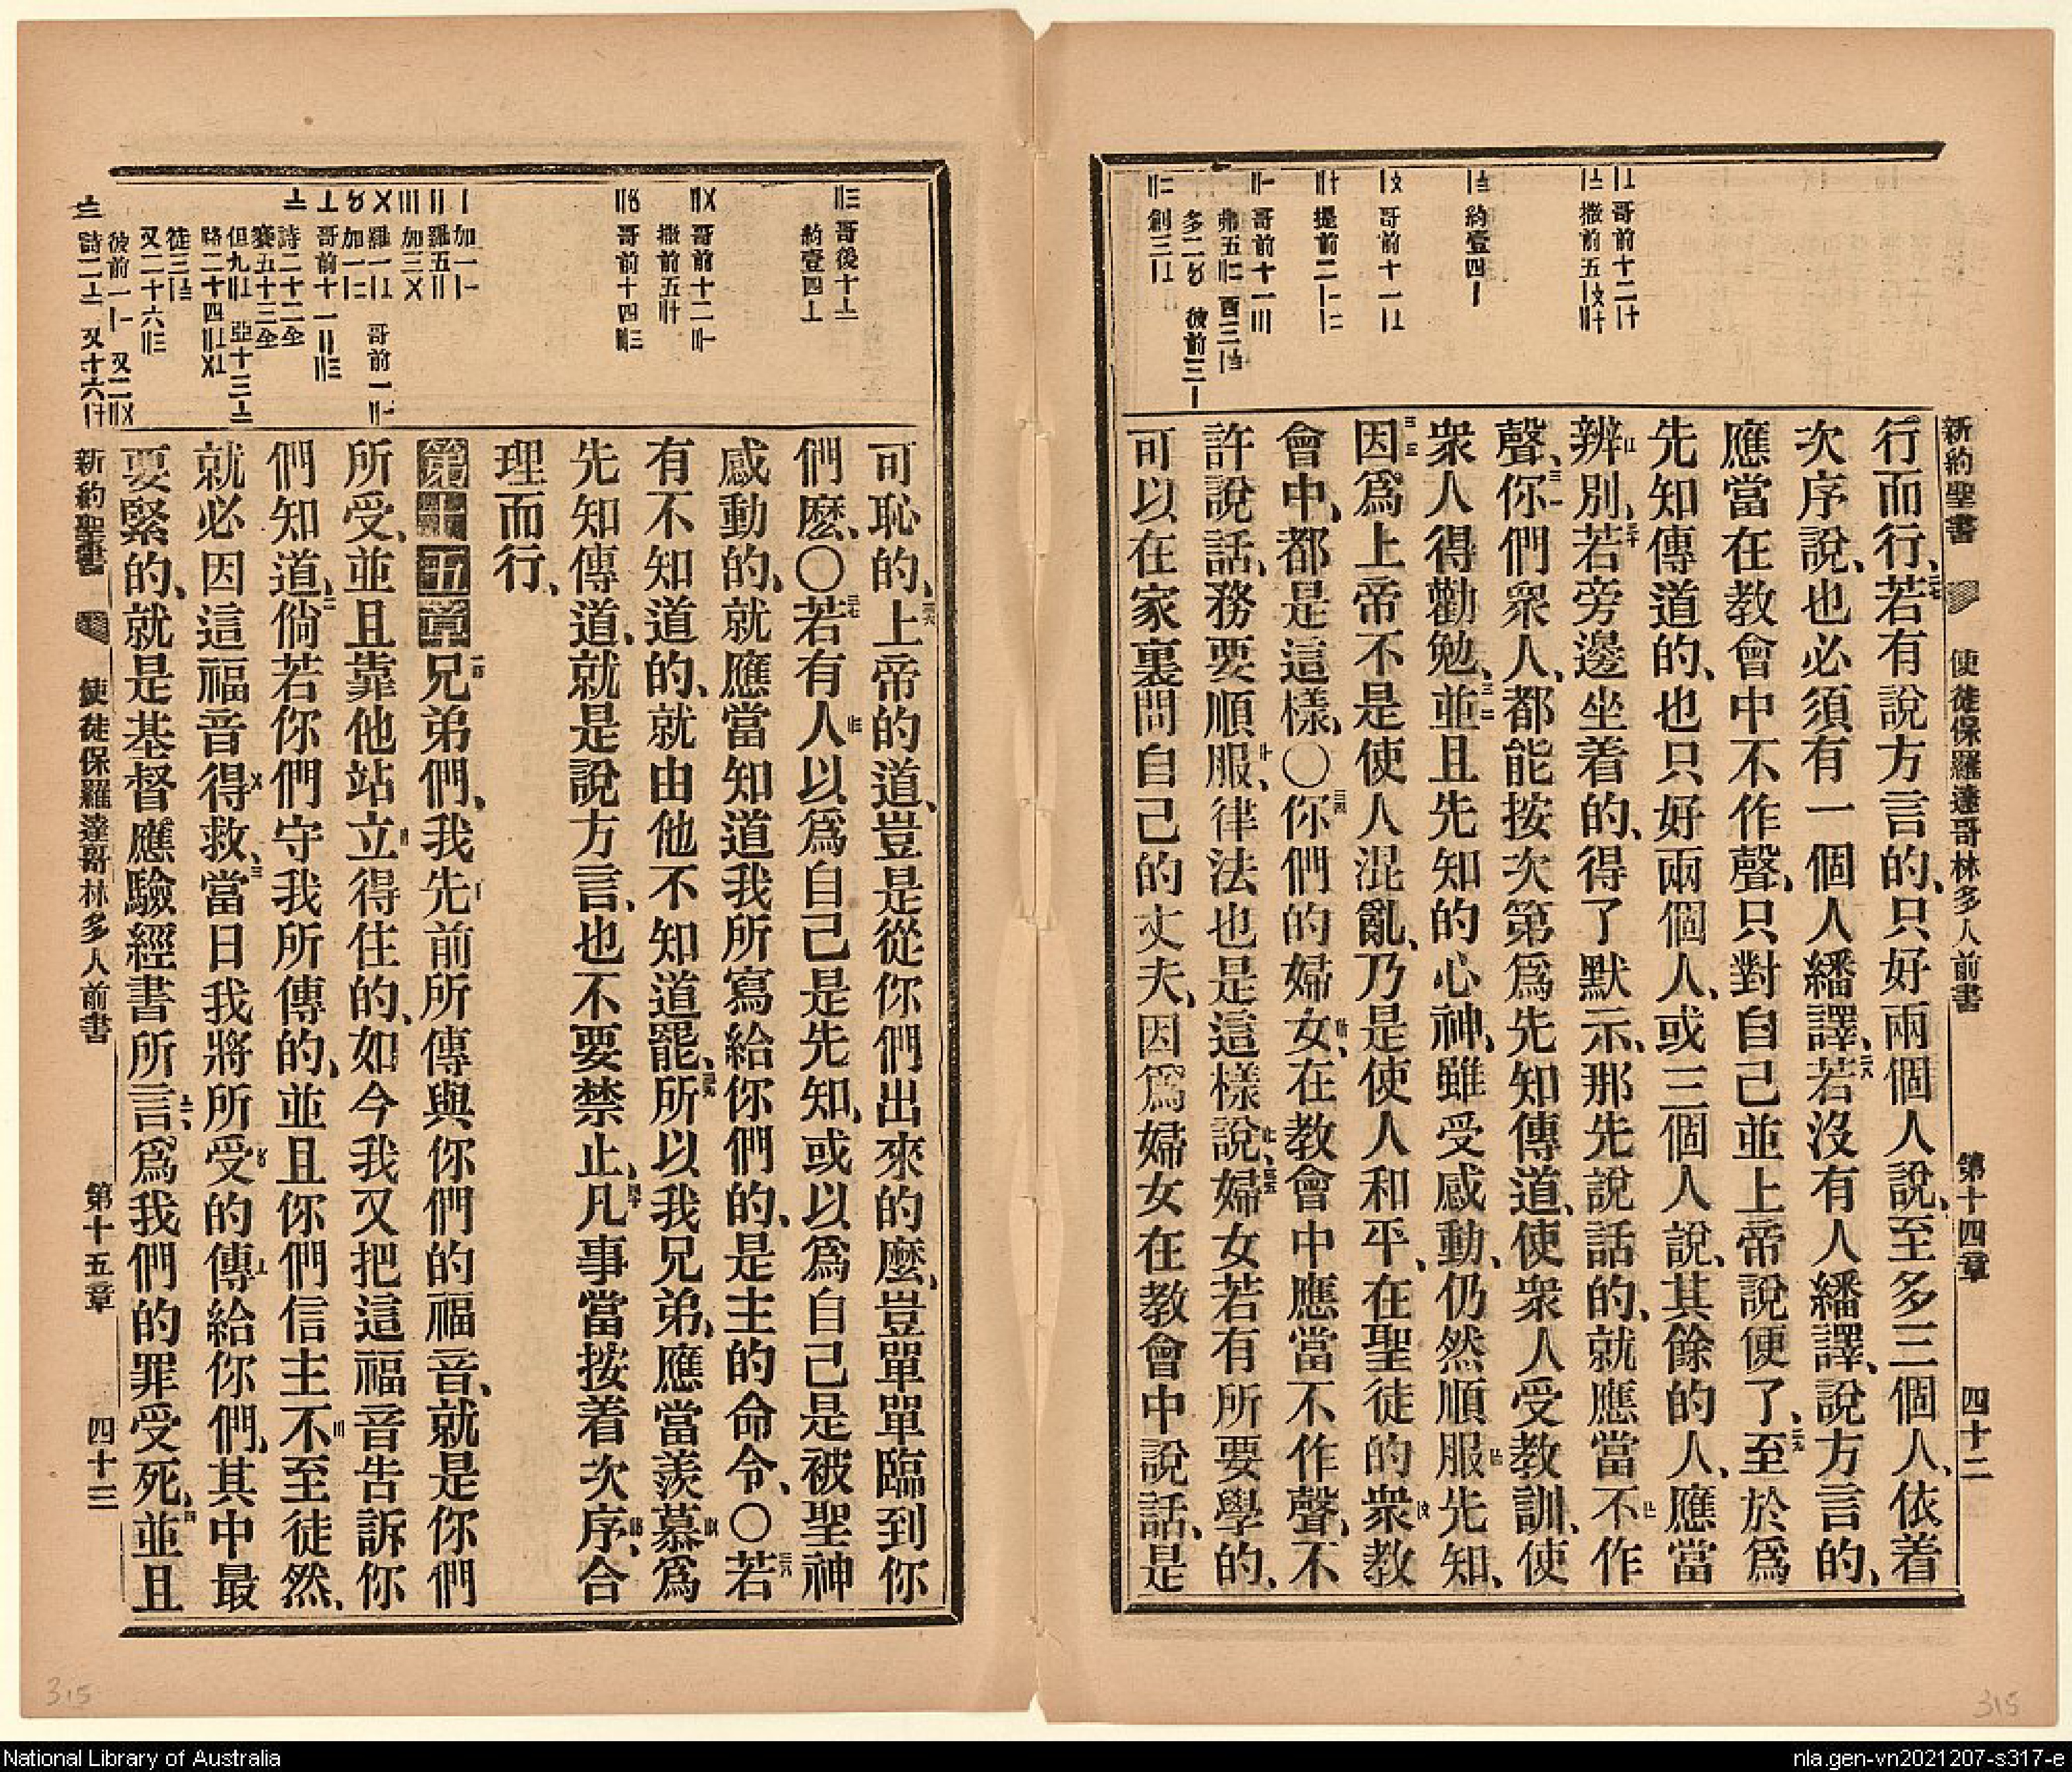 新約聖書 使徒保羅達哥林多人前書 第十四章 四十二
行而行、若有說方言的、只好兩個人說、至多三個人、依着
次序說、也必須有一個人繙譯、若沒有人繙譯、說方言的、
應當在教會中不作聲、只對自己並上帝說便了、至於爲
先知傳道的、也只好兩個人、或三個人說、其餘的人、應當
辨別、若旁邊坐着的、得了默示、那先說話的、就應當不作
聲、你們衆人、都能按次第爲先知傳道、使衆人受教訓、使
衆人得勸勉、並且先知的心神、雖受感動、仍然順服先知、
因爲上帝不是使人混亂、乃是使人和平、在聖徒的衆教
會中、都是這樣、〇你們的婦女、在教會中應當不作聲、不
許說話、務要順服、律法也是這樣說、婦女若有所要學的、
可以在家裏問自己的丈夫、因爲婦女在教會中說話、是
可恥的、上帝的道、豈是從你們出來的麼、豈單單臨到你
們麼、〇若有人以爲自己是先知、或以爲自己是被聖神
感動的、就應當知道我所寫給你們的、是主的命令、〇若
有不知道的、就由他不知道罷、所以我兄弟、應當羨慕爲
先知傳道、就是說方言、也不要禁止、凡事當按着次序、合
理而行、
第十五章 兄弟們、我先前所傳與你們的福音、就是你們
所受、並且靠他站立得住的、如今我又把這福音告訴你
們知道、倘若你們守我所傳的、並且你們信主不至徒然、
就必因這福音得救、當日我將所受的傳給你們、其中最
要緊的、就是基督應驗經書所言、爲我們的罪受死、並且
新約聖書 使徒保羅達哥林多人前書 第十五章 四十三
315
315
National Library of Australia
nla.gen-vn2021207-s317-e